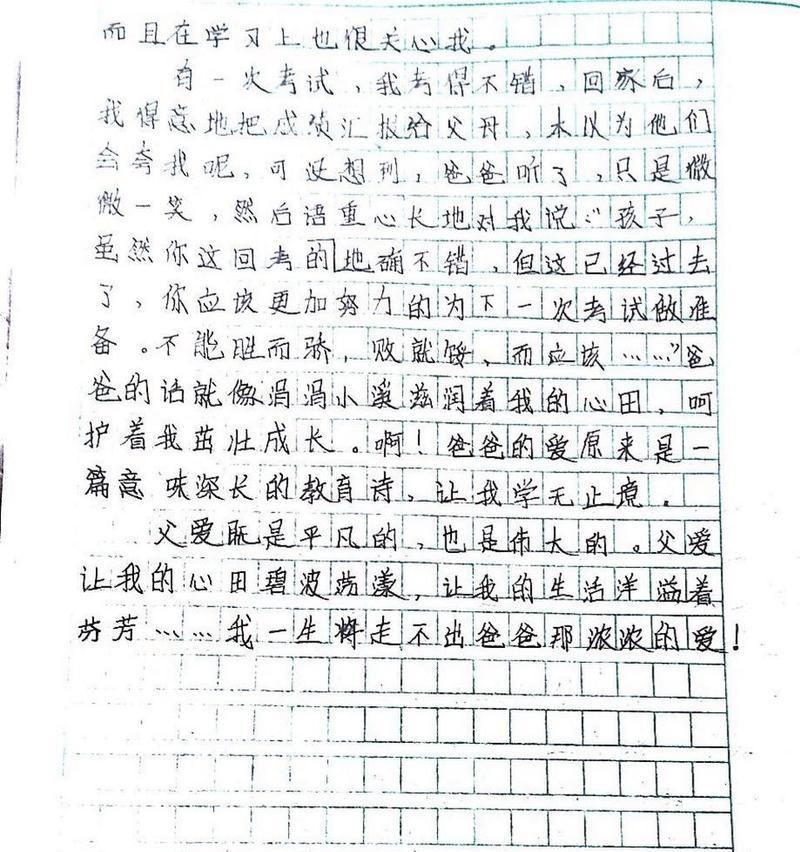 而且在学习上也很关心我。
有一次考试，我考得不错，回家后，
我得意地把成绩汇报给父母，本以为他们
会夸我呢，可没想到，爸爸听了，只是微
微一笑，然后语重心长地对我说：“孩子，
虽然你这回考的地确不错，但这已经过去
了，你应该更加努力的为下一次考试做准
备。不能胜而骄，败就馁，而应该……”爸
爸的话就像涓涓小溪滋润着我的心田，呵
护着我茁壮成长。啊！爸爸的爱原来是一
篇意味深长的教育诗，让我学无止境。
父爱既是平凡的，也是伟大的。父爱
让我的心田碧波荡漾，让我的生活洋溢着
芬芳……我一生将走不出爸爸那浓浓的爱！